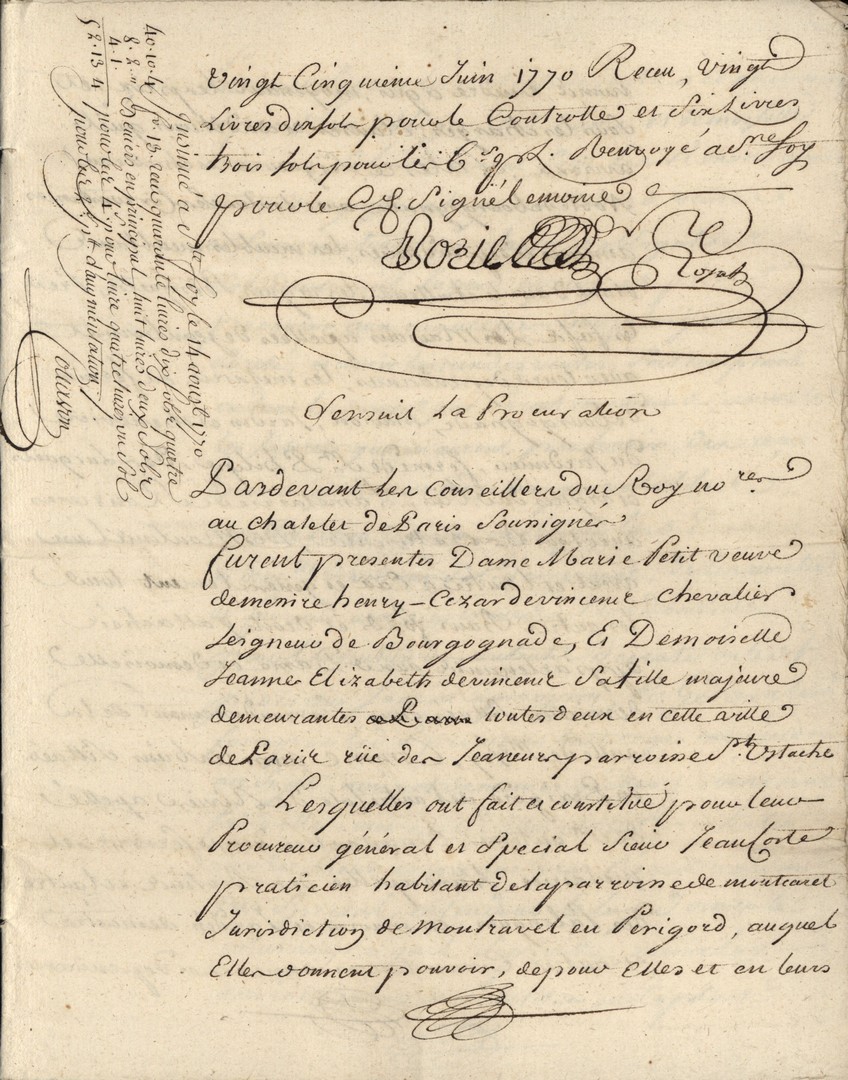 Vingt Cinquieme Juin 1770 Receu, vingt
Livres dix sols pour le Controlle et Six Livres
trois sols pour les Renvoyé a Ste foy
pour le Signé Lemoine
Insinué à Ste foy le 14 aoust 1770
40.10.4 Quarante livres dix sols quatre
8.2.″ Deniers en principal, huit livres deux Sols
4.1. pour les quatre livres un Sol
52.13.4 pour les d'augmentation
Sensuit La Procuration
Pardevant Les Conseillers du Roy nores
au chatelet de Paris Soussignés
furent presentes Dame Marie Petit veuve
de messire henry-Cezar de vincens chevalier
Seigneur de Bourgognade, Et Demoiselle
Jeanne Elizabeth de vincens Sa fille majeure
demeurantes toutes deux en cette ville
de Paris rüe des Jeaneurs parroisse St Ustache
Lesquelles ont fait et constitué pour leur
Procureur général et Spécial Sieur Jean Coste
praticien habitant de la parroisse de montcaret
Jurisdiction de Montravel en Périgord, auquel
Elles donnent pouvoir, de pour Elles et en leurs